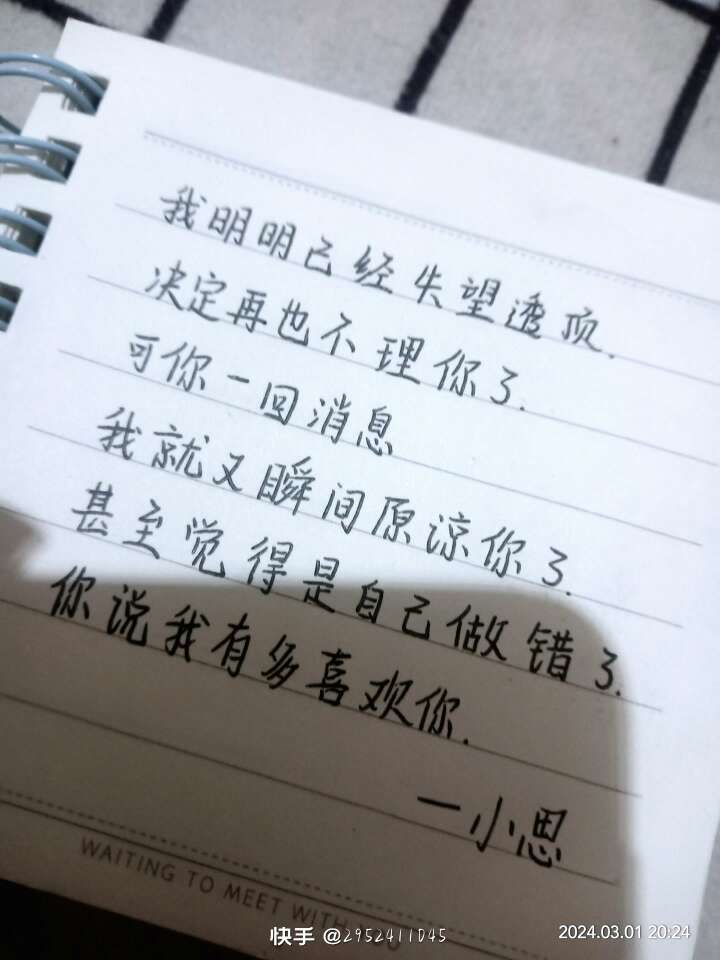 我明明已经失望透顶.
决定再也不理你了.
可你一回消息
我就又瞬间原谅你了.
甚至觉得是自己做错了.
你说我有多喜欢你.
一小思
WAITING TO MEET WITH YOU
快手 @2952411045
2024.03.01 20:24